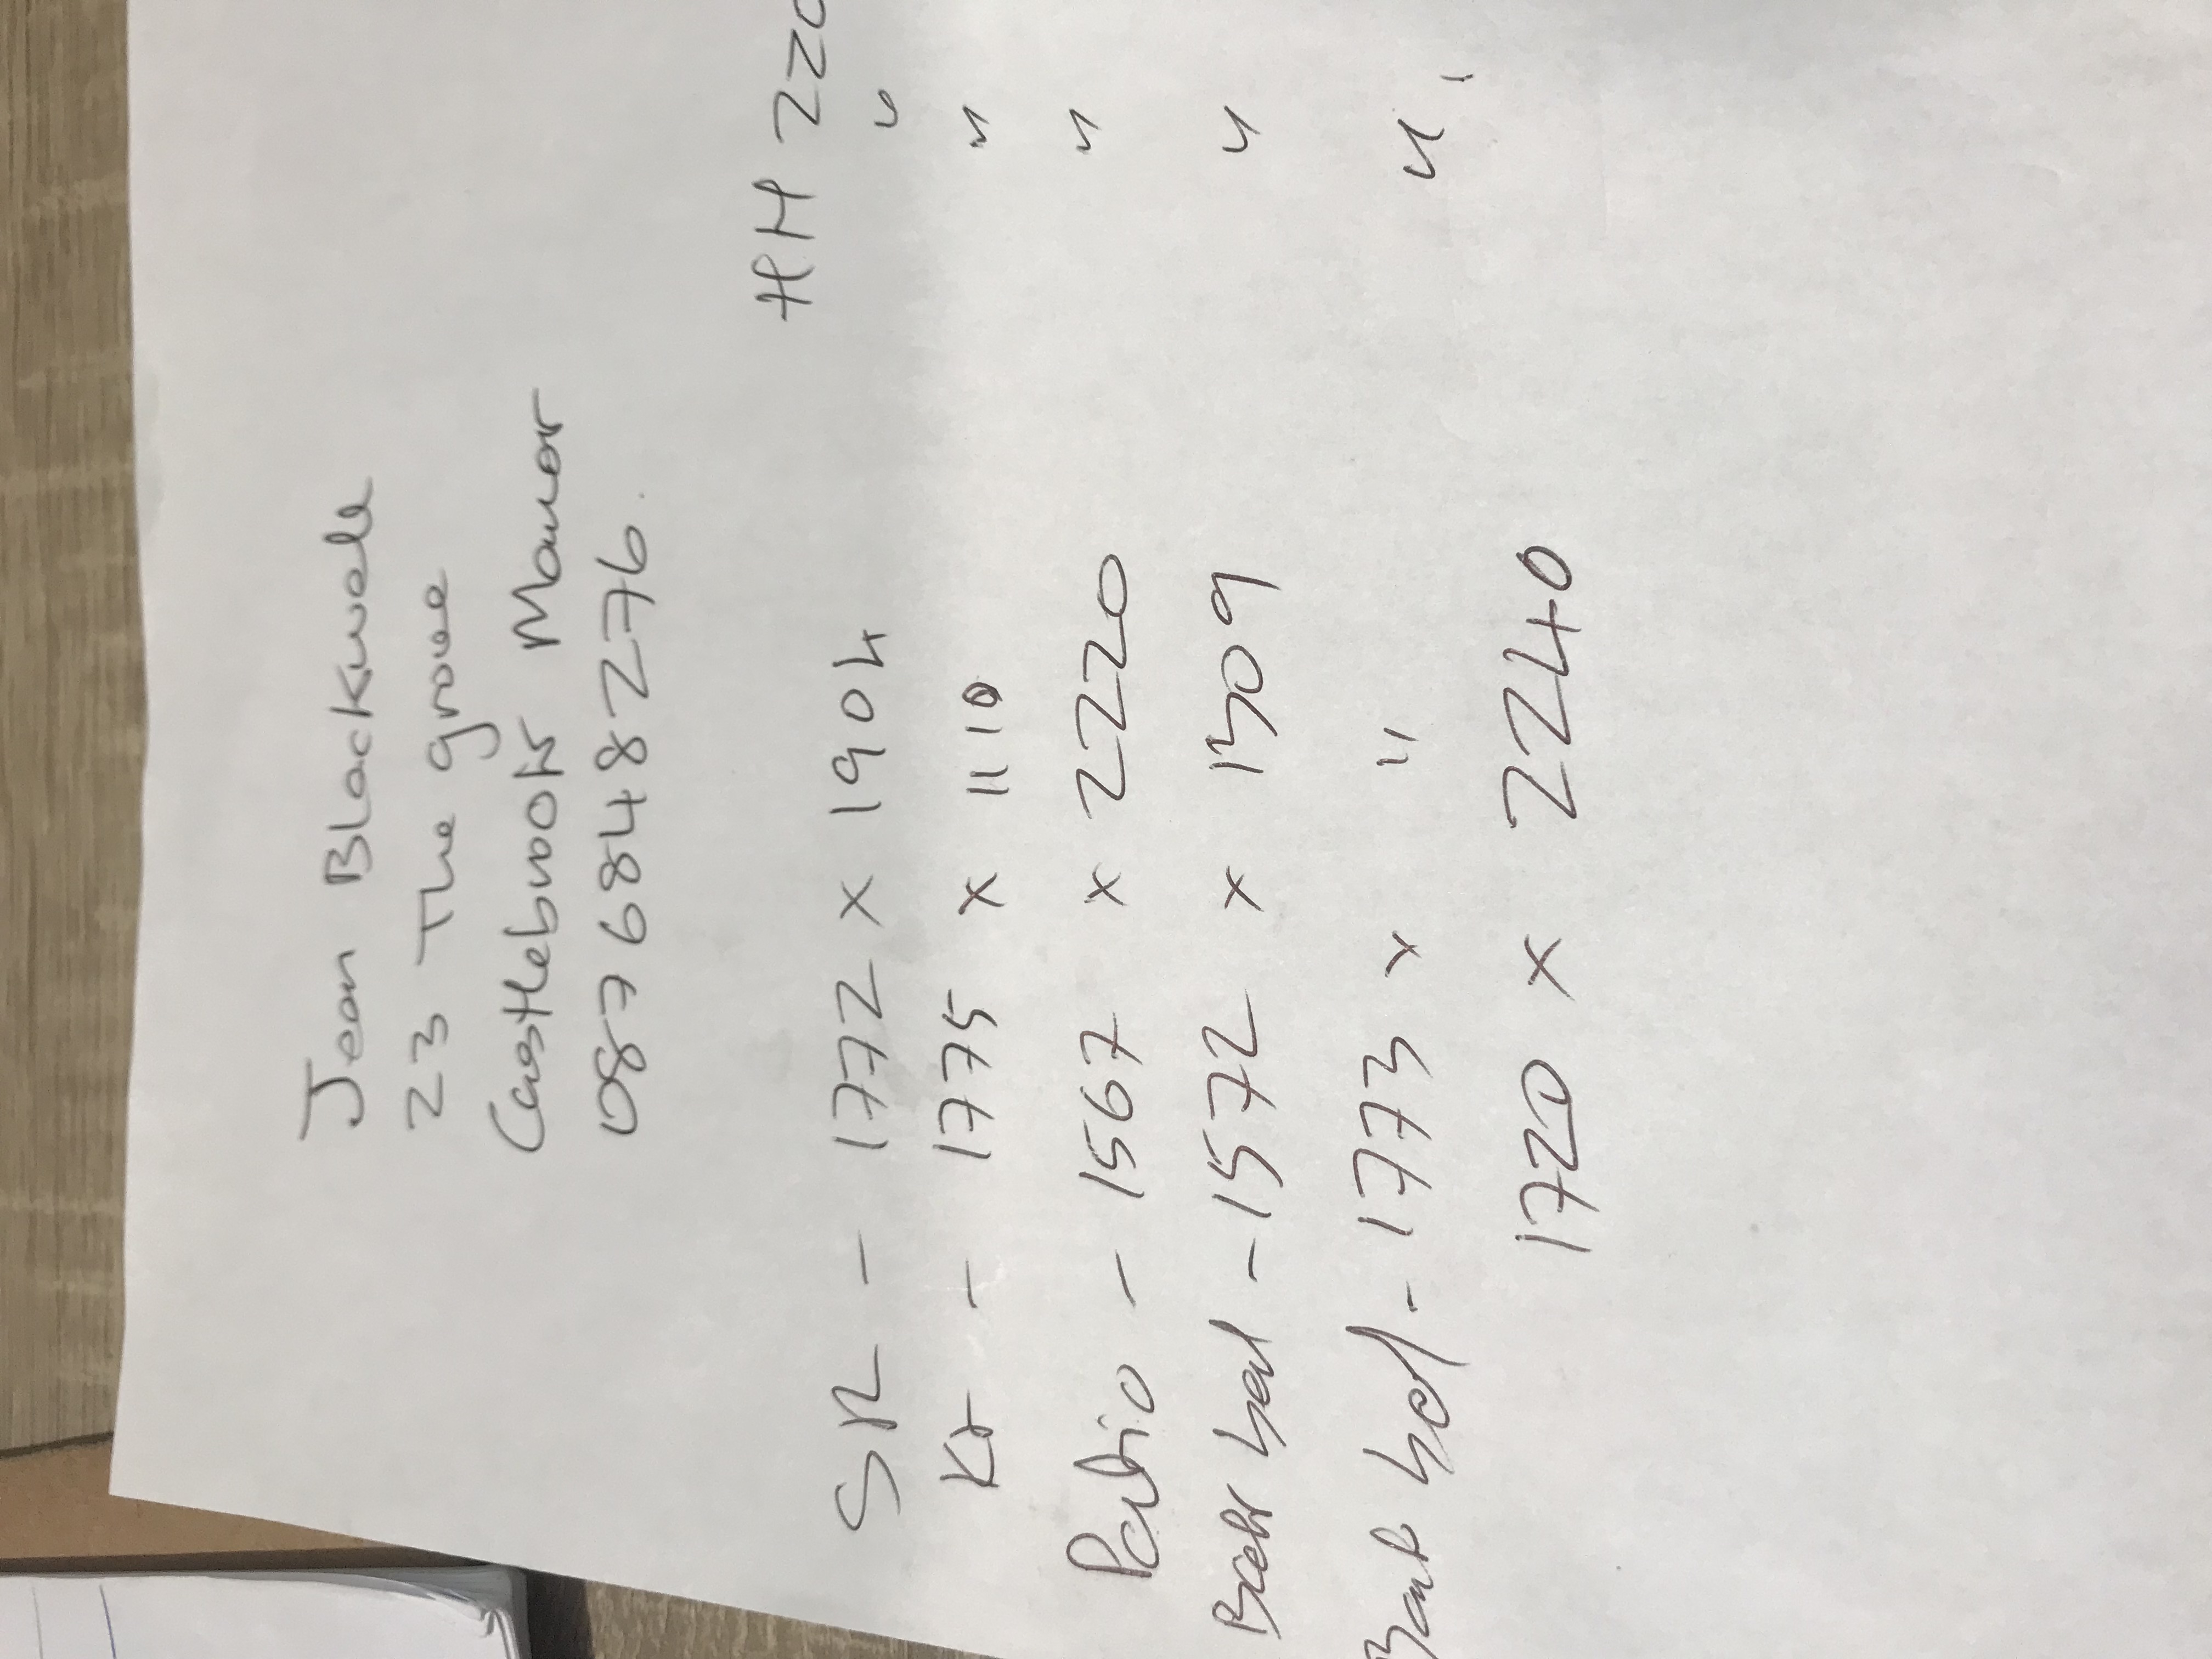 Jean Blackwell
23 The grove
Castlebrook Manor
0876848276.
HH 220
SR - 1772 x 1904 "
Kr - 1775 x 1110 "
Patio - 1567 x 2220 "
Back bed - 1572 x 1309 "
Back bed - 1773 x " "
1720 x 2240